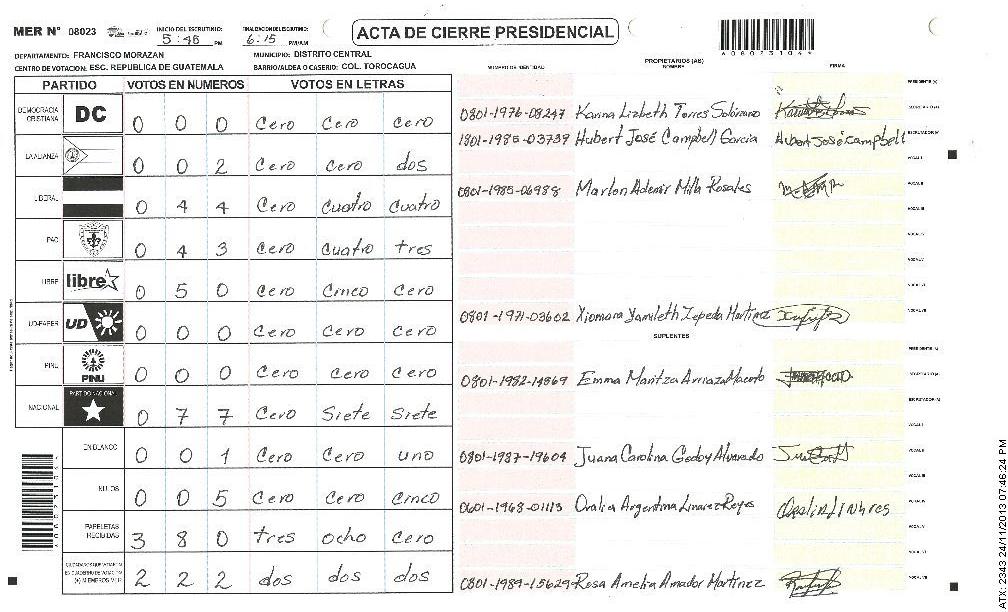 MER N° 08023
INICIO DEL ESCRUTINIO:
5:46 PM
FINALIZACION ESCRUTINIO:
6:15 PM/AM
ACTA DE CIERRE PRESIDENCIAL
DEPARTAMENTO: FRANCISCO MORAZAN
MUNICIPIO: DISTRITO CENTRAL
CENTRO DE VOTACION: ESC. REPUBLICA DE GUATEMALA
BARRIO/ALDEA O CASERIO: COL. TOROCAGUA
NUMERO DE IDENTIDAD
PROPIETARIOS (AS)
NOMBRE
FIRMA
PARTIDO VOTOS EN NUMEROS VOTOS EN LETRAS
DEMOCRACIA CRISTIANA DC 0 0 0 Cero Cero Cero
LA ALIANZA 0 0 2 Cero Cero dos
LIBERAL 0 4 4 Cero Cuatro Cuatro
PAC 0 4 3 Cero Cuatro tres
LIBRE libre 0 5 0 Cero Cinco Cero
UD-FAPER UD 0 0 0 Cero Cero Cero
PINU PINU 0 0 0 Cero Cero Cero
NACIONAL PARTIDO NACIONAL 0 7 7 Cero Siete Siete
EN BLANCO 0 0 1 Cero Cero uno
NULOS 0 0 5 Cero Cero Cinco
PAPELETAS RECIBIDAS 3 8 0 tres ocho cero
2 2 2 dos dos dos
PRESIDENTE (A)
0801-1976-08247 Karina Lizbeth Torres Solórzano SECRETARIO (A)
1801-1985-03739 Hubert José Campbell Garcia Hubert José Campbell ESCRUTADOR (A)
VOCAL I
0801-1985-06988 Marlon Ademir Milla Rosales VOCAL II
VOCAL III
VOCAL IV
VOCAL V
VOCAL VI
0801-1971-03602 Xiomara Yamileth Zepeda Martinez VOCAL VII
SUPLENTES
PRESIDENTE (A)
0801-1982-14869 Emma Maritza Arriaza SECRETARIO (A)
ESCRUTADOR (A)
VOCAL I
0801-1987-19604 Juana Carolina Godoy Alvarado VOCAL II
VOCAL III
0601-1968-01113 Oralia Argentina Linarez Reyes VOCAL IV
VOCAL V
VOCAL VI
0801-1989-15629 Rosa Amelia Amador Martinez VOCAL VII
ATX-2343 24/11/2013 07:46:24 PM